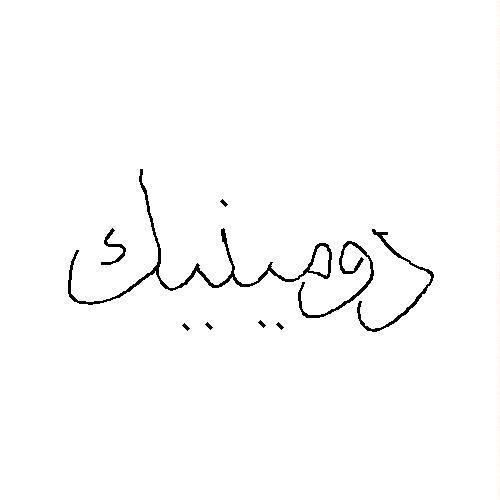 دومينيك